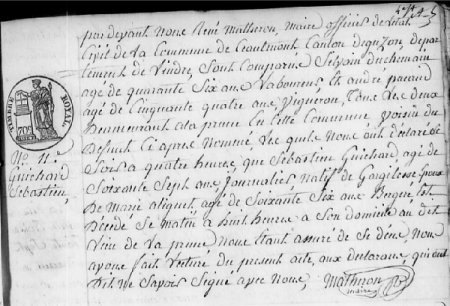 par devant Nous René Matheron, maire officier de l'état
Civil de La Commune de Ceaulmont, Canton d'eguzon, depar
tement de l'indre, Sont Comparus Silvain duchemain
agé de quarante Six ans Laboureur, Et andre pacaud
agé de Cinquante quatre ans, Vigneron, tous Les deux
Demeurant a la prune En Cette Commune, Voisin du
Defunt Ci apres Nommé, Les quels Nous ont déclaré Ce
Soir a quatre heures, que Sebastien Guichard, agé de
Soixante Sept ans, journalier, Natif de Gargilesse, Epoux
De Marie aliquet, agé de Soixante Six ans Bergere, Est
Décédé Ce matin a huit heures a Son domicile au dit
Lieu de La prune Nous Etant assuré de Ce décès, Nous
avons fait Lecture du présent acte, aux declarans, qui ont
Dit Ne Savoir Signer avec Nous, Matheron
maire
TIMBRE ROYAL
No. 11.
Guichard
Sebastien,